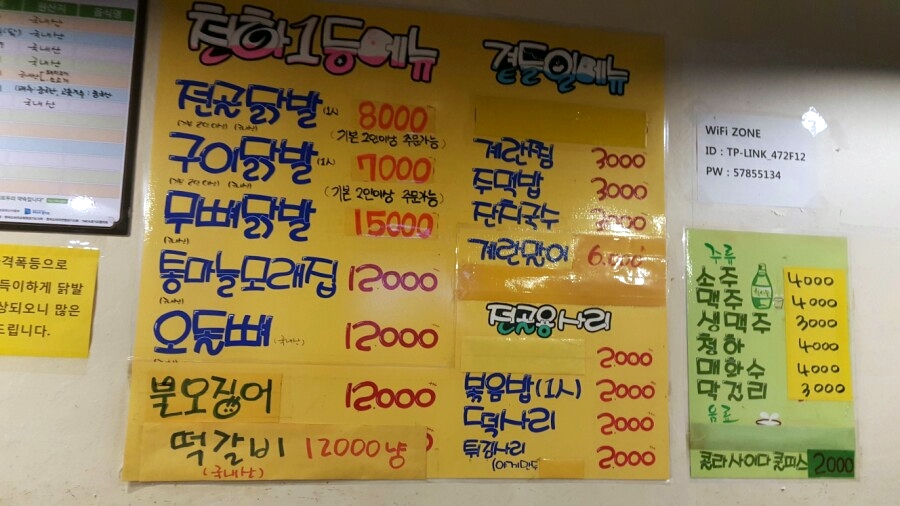 국내산
국내산
국내산
국내산
국내산
격폭등으로
득이하게 닭발
상되오니 많은
드립니다.
천하1등메뉴
전골닭발 (1人) 8000
(기본 2인이상 주문가능)
구이닭발 (1人) 7000
(기본 2인이상 주문가능)
무뼈닭발 15000
통마늘모래집 12000
오돌뼈 (국내산) 12000
불오징어 12000
떡갈비 12000냥
(국내산)
곁들임메뉴
계란찜 3000
주먹밥 3000
잔치국수 3000
계란말이 6,000
전골용사리
2000
볶음밥(1人) 2000
떡사리 2000
튀김사리 2000
WiFi ZONE
ID : TP-LINK_472F12
PW : 57855134
주류
소주 4000
맥주 4000
생맥주 3000
청하 4000
매화수 4000
막걸리 3000
음료
콜라 사이다 쿨피스 2000